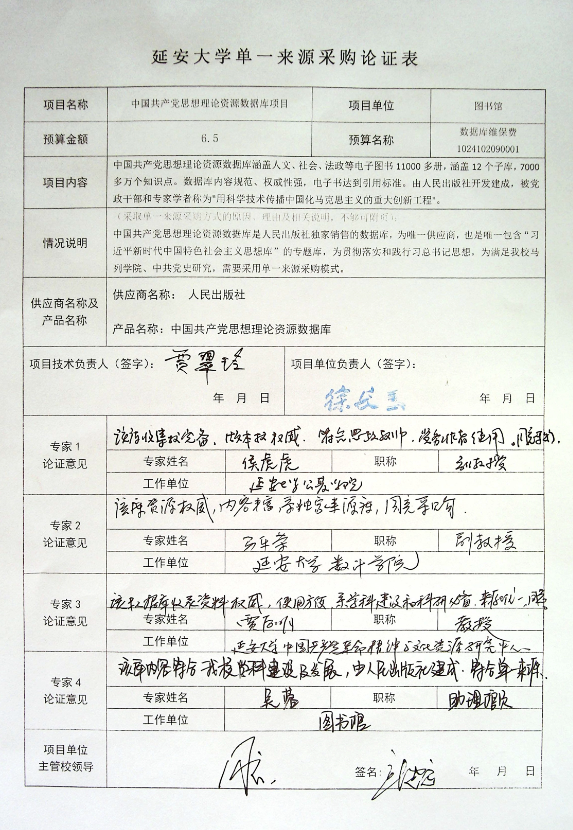 延安大学单一来源采购论证表
项目名称 中国共产党思想理论资源数据库项目 项目单位 图书馆
预算金额 6.5 预算名称 数据库维保费 1024102090001
项目内容
中国共产党思想理论资源数据库涵盖人文、社会、法政等电子图书 11000 多册，涵盖 12 个子库，7000
多万个知识点。数据库内容规范、权威性强，电子书达到引用标准。由人民出版社开发建成，被党
政干部和专家学者称为“用科学技术传播中国化马克思主义的重大创新工程”。
情况说明
（采取单一来源采购方式的原因、理由及相关说明，不够可附页）
中国共产党思想理论资源数据库是人民出版社独家销售的数据库，为唯一供应商，也是唯一包含“习
近平新时代中国特色社会主义思想库”的专题库，为贯彻落实和践行习总书记思想，为满足我校马
列学院、中共党史研究，需要采用单一来源采购模式。
供应商名称及
产品名称
供应商名称： 人民出版社
产品名称：中国共产党思想理论资源数据库
项目技术负责人（签字）： 贾翠玲
年 月 日
项目单位负责人（签字）：
年 月 日
专家 1
论证意见
专家姓名 侯虎虎 职称 副教授
工作单位 延安大学公共学院
专家 2
论证意见
专家姓名 职称 副教授
工作单位 延安大学数计学院
专家 3
论证意见
该数据库收录资料权威，使用方便，
专家姓名 职称 教授
工作单位
专家 4
论证意见
该库内容符合我校学科建设及发展，由人民出版社建成，符合单一来源。
专家姓名 吴蓉 职称 助理馆员
工作单位 图书馆
项目单位
主管校领导
签名： 年 月 日